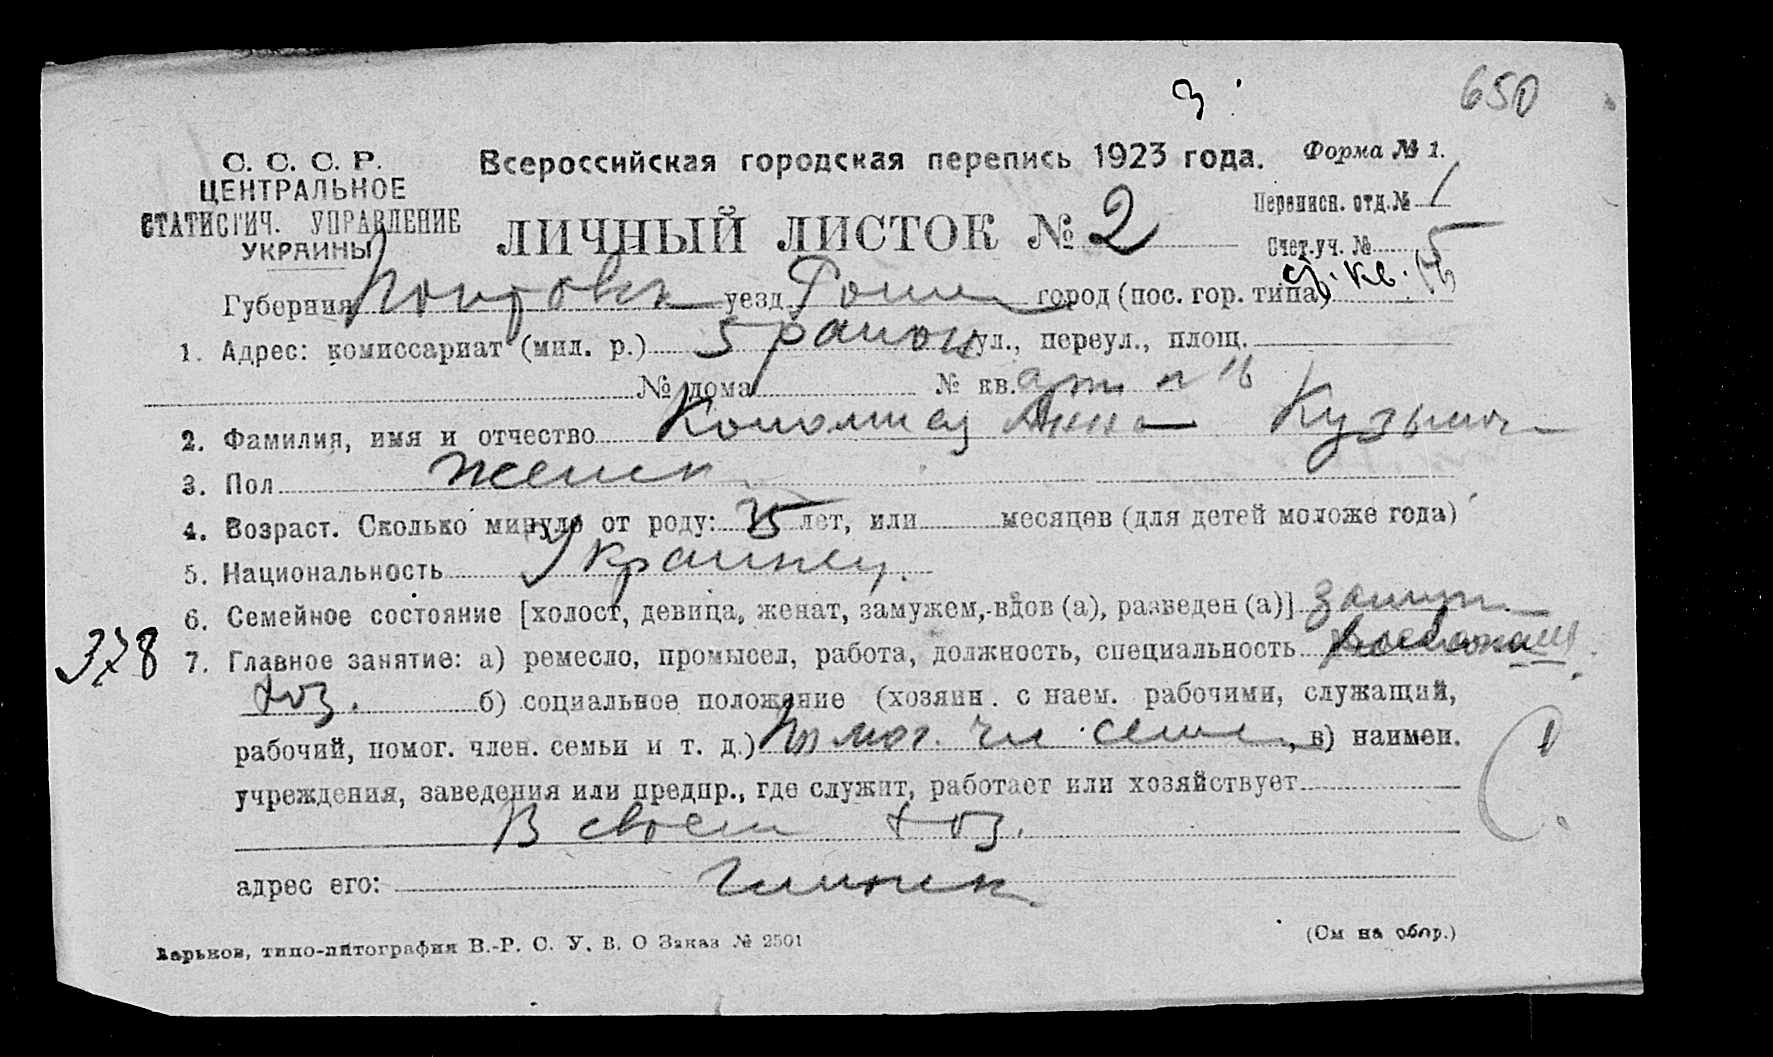 3
650
С. С. С. Р.
ЦЕНТРАЛЬНОЕ
СТАТИСТИЧ. УПРАВЛЕНИЕ
УКРАИНЫ
Всероссийская городская перепись 1923 года.
Форма № 1.
ЛИЧНЫЙ ЛИСТОК № 2
Переписн. отд. № 1
Счет. уч. № 5
Губерния уезд город (пос. гор. типа)
1. Адрес: комиссариат (мил. р.) 5 район ул., переул., площ.
№ дома № кв.
2. Фамилия, имя и отчество Коломиец Анна Кузьмов
3. Пол женск
4. Возраст. Сколько минуло от роду: лет, или месяцев (для детей моложе года)
5. Национальность Украинец.
6. Семейное состояние [холост, девица, женат, замужем, вдов (а), разведен (а)] замуж
378
7. Главное занятие: а) ремесло, промысел, работа, должность, специальность
хоз. б) социальное положение (хозяин. с наем. рабочими, служащий,
рабочий, помог. член. семьи и т. д.) Помог. чл семьи, в) наимен.
учреждения, заведения или предпр., где служит, работает или хозяйствует
В своем хоз.
адрес его: Глинск
Харьков, типо-литография В.-Р. С. У. В. О Заказ № 2501
(См на обор.)